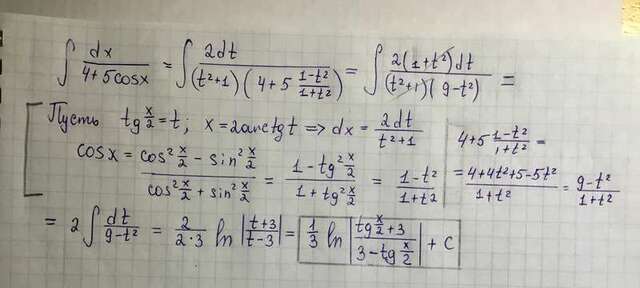 ∫ dx/(4+5cosx) = ∫ 2dt/((t²+1)(4+5 (1-t²)/(1+t²))) = ∫ 2(1+t²)dt/((t²+1)(9-t²)) =
Пусть tg x/2 = t; x = 2arctgt ⇒ dx = 2dt/(t²+1)
4+5 (1-t²)/(1+t²) =
cosx = (cos² x/2 - sin² x/2)/(cos² x/2 + sin² x/2) = (1 - tg² x/2)/(1 + tg² x/2) = (1-t²)/(1+t²)
= (4+4t²+5-5t²)/(1+t²) = (9-t²)/(1+t²)
= 2∫ dt/(9-t²) = 2/(2·3) ln |(t+3)/(t-3)| = 1/3 ln |(tg x/2 + 3)/(3 - tg x/2)| + C